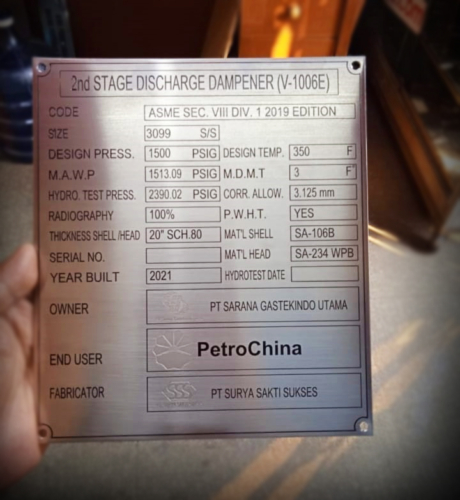 2nd STAGE DISCHARGE DAMPENER (V-1006E)
CODE ASME SEC. VIII DIV. 1 2019 EDITION
SIZE 3099 S/S
DESIGN PRESS. 1500 PSIG DESIGN TEMP. 350 F
M.A.W.P 1513.09 PSIG M.D.M.T 3 F
HYDRO. TEST PRESS. 2390.02 PSIG CORR. ALLOW. 3.125 mm
RADIOGRAPHY 100% P.W.H.T. YES
THICKNESS SHELL /HEAD 20" SCH.80 MAT'L SHELL SA-106B
SERIAL NO. MAT'L HEAD SA-234 WPB
YEAR BUILT 2021 HYDROTEST DATE
OWNER PT SARANA GASTEKINDO UTAMA
END USER PetroChina
FABRICATOR SSS PT SURYA SAKTI SUKSES